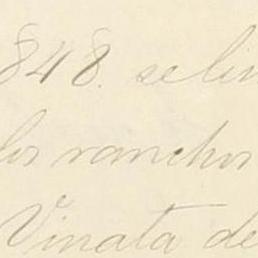 848. seliv
los ranchos
Vinata de